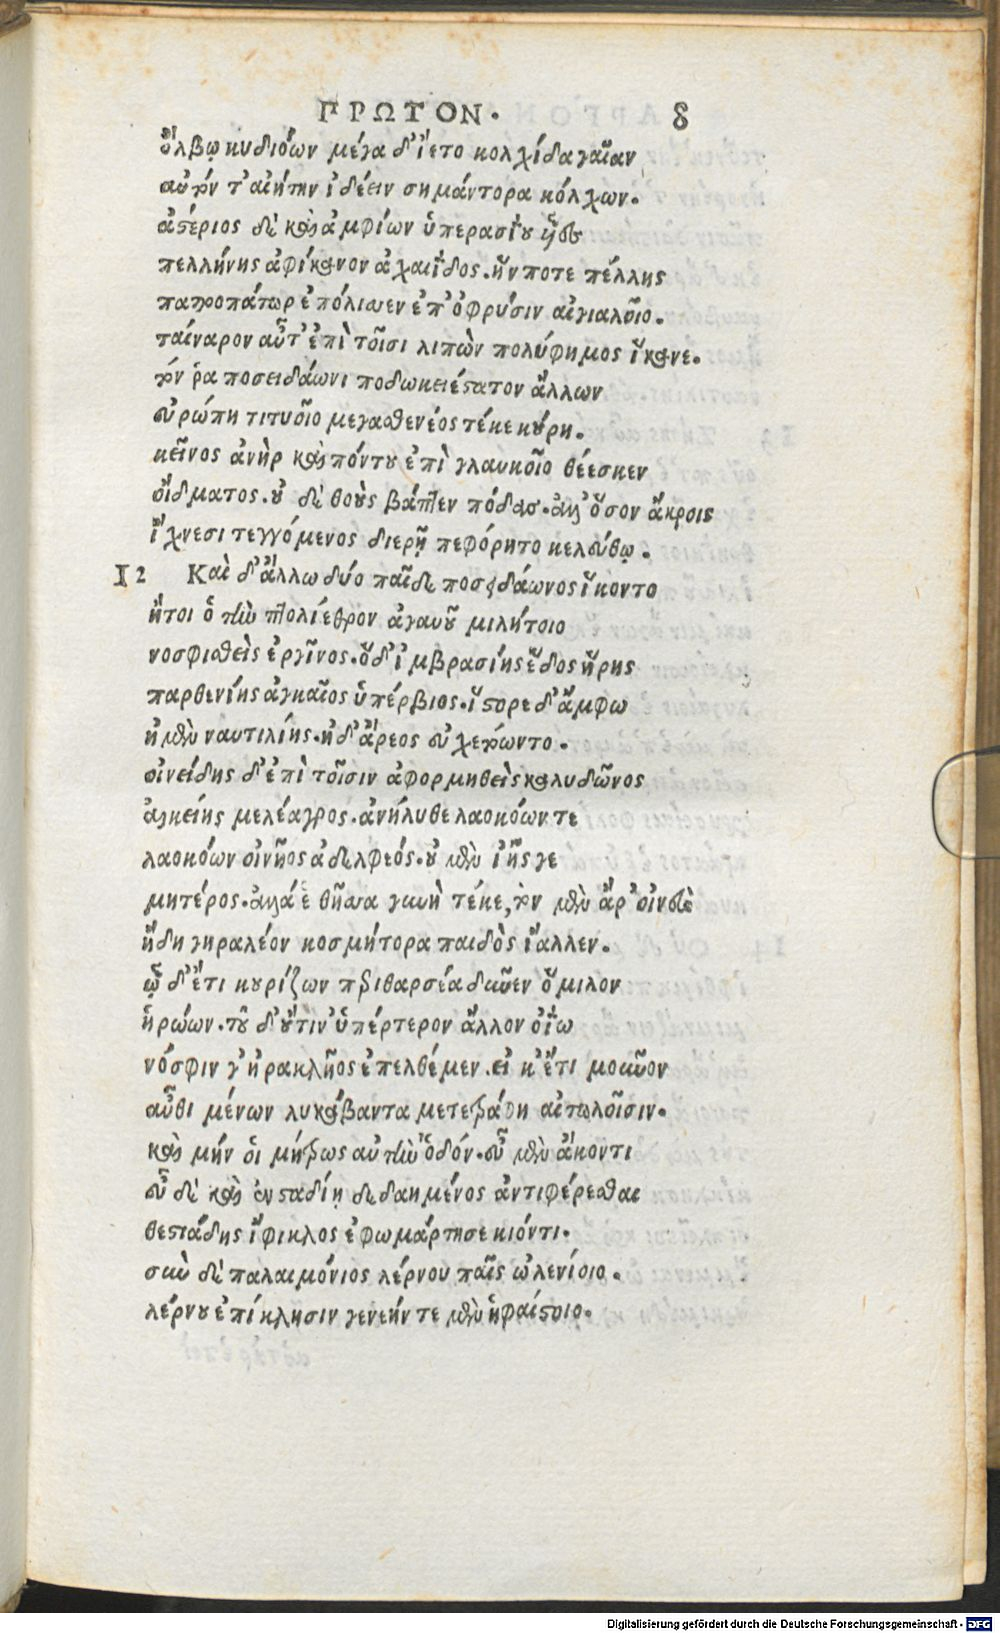 ΠΡΩΤΟΝ. 8
ὄλβῳ κυδιόων μέγα δ' ἵετο κολχίδα γαῖαν
αὐτόν τ' αἰήτην ἰδέειν σημάντορα κόλχων.
ἀστέριος δὲ καὶ ἀμφίων ὑπερασίου υἷες
πελλήνης ἀφίκανον ἀχαιΐδος. ἥν ποτε πέλλης
πατροπάτωρ ἐπόλισσεν ἐπ' ὀφρύσιν αἰγιαλοῖο.
ταίναρον αὖτ' ἐπὶ τοῖσι λιπὼν πολύφημος ἵκανε.
τόν ῥα ποσειδάωνι ποδωκειέστατον ἄλλων
εὐρώπη τιτυοῖο μεγασθενέος τέκε κούρη.
κεῖνος ἀνὴρ καὶ πόντου ἐπὶ γλαυκοῖο θέεσκεν
οἴδματος. οὐ δὲ θοοὺς βάπτεν πόδας. ἀλλ' ὅσον ἄκροις
ἴχνεσι τεγγόμενος διερῇ πεφόρητο κελεύθῳ.
12 Καὶ δ' ἄλλω δύο παῖδε ποσειδάωνος ἵκοντο
ἤτοι ὁ τὴν πτολίεθρον ἀγαυοῦ μιλήτοιο
νοσφισθεὶς ἐργῖνος. ὅδ' ἰμβρασίης ἕδος ἥρης
παρθενίης ἀγκαῖος ὑπέρβιος. ἵστορε δ' ἄμφω
ἠμὲν ναυτιλίης. ἠδ' ἄρεος εὐχετόωντο.
οἰνείδης δ' ἐπὶ τοῖσιν ἀφορμηθεὶς καλυδῶνος
ἀλκείης μελέαγρος. ἀνήλυθε λαοκόων τε
λαοκόων οἰνῆος ἀδελφεός. οὐ μὲν ἰῆς γε
μητέρος. ἀλλά ἑ θῆσσα γυνὴ τέκε, τὸν μὲν ἄρ' οἰνεὺς
ἤδη γηραλέον κοσμήτορα παιδὸς ἴαλλεν.
ᾧ δ' ἔτι κουρίζων περιθαρσέα δῦνεν ὅμιλον
ἡρώων. τοῦ δ' οὔτιν' ὑπέρτερον ἄλλον ὀΐω
νόσφιν γ' ἡρακλῆος ἐπελθέμεν. εἰ κ' ἔτι μοῦνον
αὖθι μένων λυκάβαντα μετετράφη αἰτωλοῖσιν.
καὶ μήν οἱ μήτρως αὐτὴν ὁδόν. εὖ μὲν ἄκοντι
εὖ δὲ καὶ ἐν σταδίῃ δεδαημένος ἀντιφέρεσθαι
θεστιάδης ἴφικλος ἐφωμάρτησε κιόντι.
σὺν δὲ παλαιμόνιος λέρνου παῖς ὠλενίοιο.
λέρνου ἐπίκλησιν γενεήν τε μὲν ἡφαίστοιο.
Digitalisierung gefördert durch die Deutsche Forschungsgemeinschaft - DFG